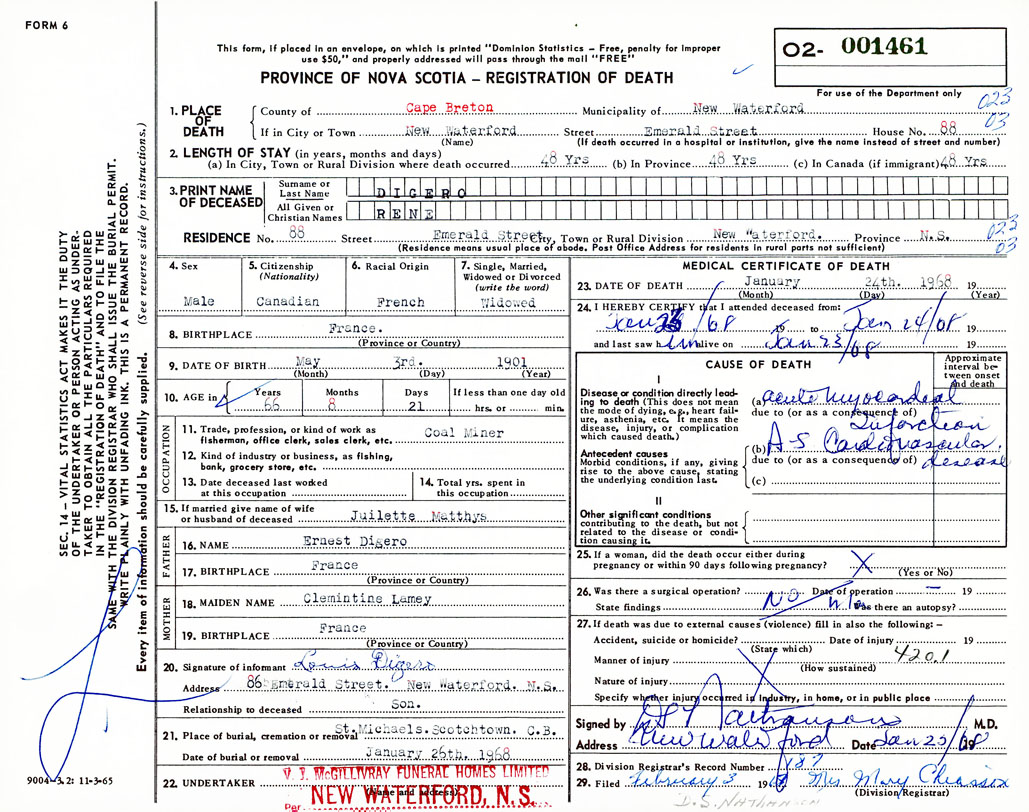 FORM 6
This form, if placed in an envelope, on which is printed "Dominion Statistics – Free, penalty for improper
use $50," and properly addressed will pass through the mail "FREE"
PROVINCE OF NOVA SCOTIA – REGISTRATION OF DEATH
02- 001461
For use of the Department only
023
03
1. PLACE OF DEATH
County of Cape Breton Municipality of New Waterford
If in City or Town New Waterford Street Emerald Street House No. 88
(Name) (If death occurred in a hospital or institution, give the name instead of street and number)
2. LENGTH OF STAY (in years, months and days)
(a) In City, Town or Rural Division where death occurred 48 Yrs (b) In Province 48 Yrs (c) In Canada (if immigrant) 48 Yrs
3. PRINT NAME OF DECEASED
Surname or Last Name DIGERO
All Given or Christian Names RENE
RESIDENCE No. 88 Street Emerald Street City, Town or Rural Division New Waterford. Province N.S.
(Residence means usual place of abode. Post Office Address for residents in rural parts not sufficient)
023
03
4. Sex
Male
5. Citizenship (Nationality)
Canadian
6. Racial Origin
French
7. Single, Married, Widowed or Divorced (write the word)
Widowed
8. BIRTHPLACE France.
(Province or Country)
9. DATE OF BIRTH May 3rd. 1901
(Month) (Day) (Year)
10. AGE in Years Months Days If less than one day old
66 8 21 hrs. or min.
OCCUPATION
11. Trade, profession, or kind of work as Coal Miner
fisherman, office clerk, sales clerk, etc.
12. Kind of industry or business, as fishing,
bank, grocery store, etc.
13. Date deceased last worked
at this occupation
14. Total yrs. spent in
this occupation
15. If married give name of wife
or husband of deceased Juilette Matthys
FATHER
16. NAME Ernest Digero
17. BIRTHPLACE France
(Province or Country)
MOTHER
18. MAIDEN NAME Clemintine Lamey
19. BIRTHPLACE France
(Province or Country)
20. Signature of informant Louis Digero
Address 86 Emerald Street. New Waterford. N.S.
Relationship to deceased Son.
21. Place of burial, cremation or removal St. Michaels. Scotchtown. C.B.
Date of burial or removal January 26th. 1968
22. UNDERTAKER V. J. McGILLIVRAY FUNERAL HOMES LIMITED
(Name and address)
NEW WATERFORD, N.S.
Per
MEDICAL CERTIFICATE OF DEATH
23. DATE OF DEATH January 24th. 1968 19
(Month) (Day) (Year)
24. I HEREBY CERTIFY that I attended deceased from:
Jan 23/68 19 to Jan 24/68 19
and last saw him alive on Jan 23/68 19
CAUSE OF DEATH
Approximate interval between onset and death
I
Disease or condition directly leading to death (This does not mean the mode of dying, e.g., heart failure, asthenia, etc. It means the disease, injury, or complication which caused death.)
(a) acute myocardial
due to (or as a consequence of) Infarction
Antecedent causes
Morbid conditions, if any, giving rise to the above cause, stating the underlying condition last.
(b) A-S Cardiovascular
due to (or as a consequence of) disease
(c)
II
Other significant conditions
contributing to the death, but not related to the disease or condition causing it.
25. If a woman, did the death occur either during
pregnancy or within 90 days following pregnancy? X
(Yes or No)
26. Was there a surgical operation? NO Date of operation – 19
State findings Was there an autopsy? No
27. If death was due to external causes (violence) fill in also the following: –
Accident, suicide or homicide? Date of injury 19
(State which)
Manner of injury 420.1
(How sustained)
Nature of injury
Specify whether injury occurred in industry, in home, or in public place
Signed by Nathanson M.D.
Address New Waterford Date Jan 25/68 19
28. Division Registrar's Record Number 187
29. Filed February 3 1968 Mrs Mary Chiasson
(Division Registrar)
D.S. NATHANSON
SEC. 14 – VITAL STATISTICS ACT MAKES IT THE DUTY
OF THE UNDERTAKER OR PERSON ACTING AS UNDER-
TAKER TO OBTAIN ALL THE PARTICULARS REQUIRED
IN THE "REGISTRATION OF DEATH" AND TO FILE THE
SAME WITH THE DIVISION REGISTRAR WHO SHALL ISSUE THE BURIAL PERMIT.
WRITE PLAINLY WITH UNFADING INK. THIS IS A PERMANENT RECORD.
Every item of information should be carefully supplied. (See reverse side for instructions.)
9004-3.2: 11-3-65